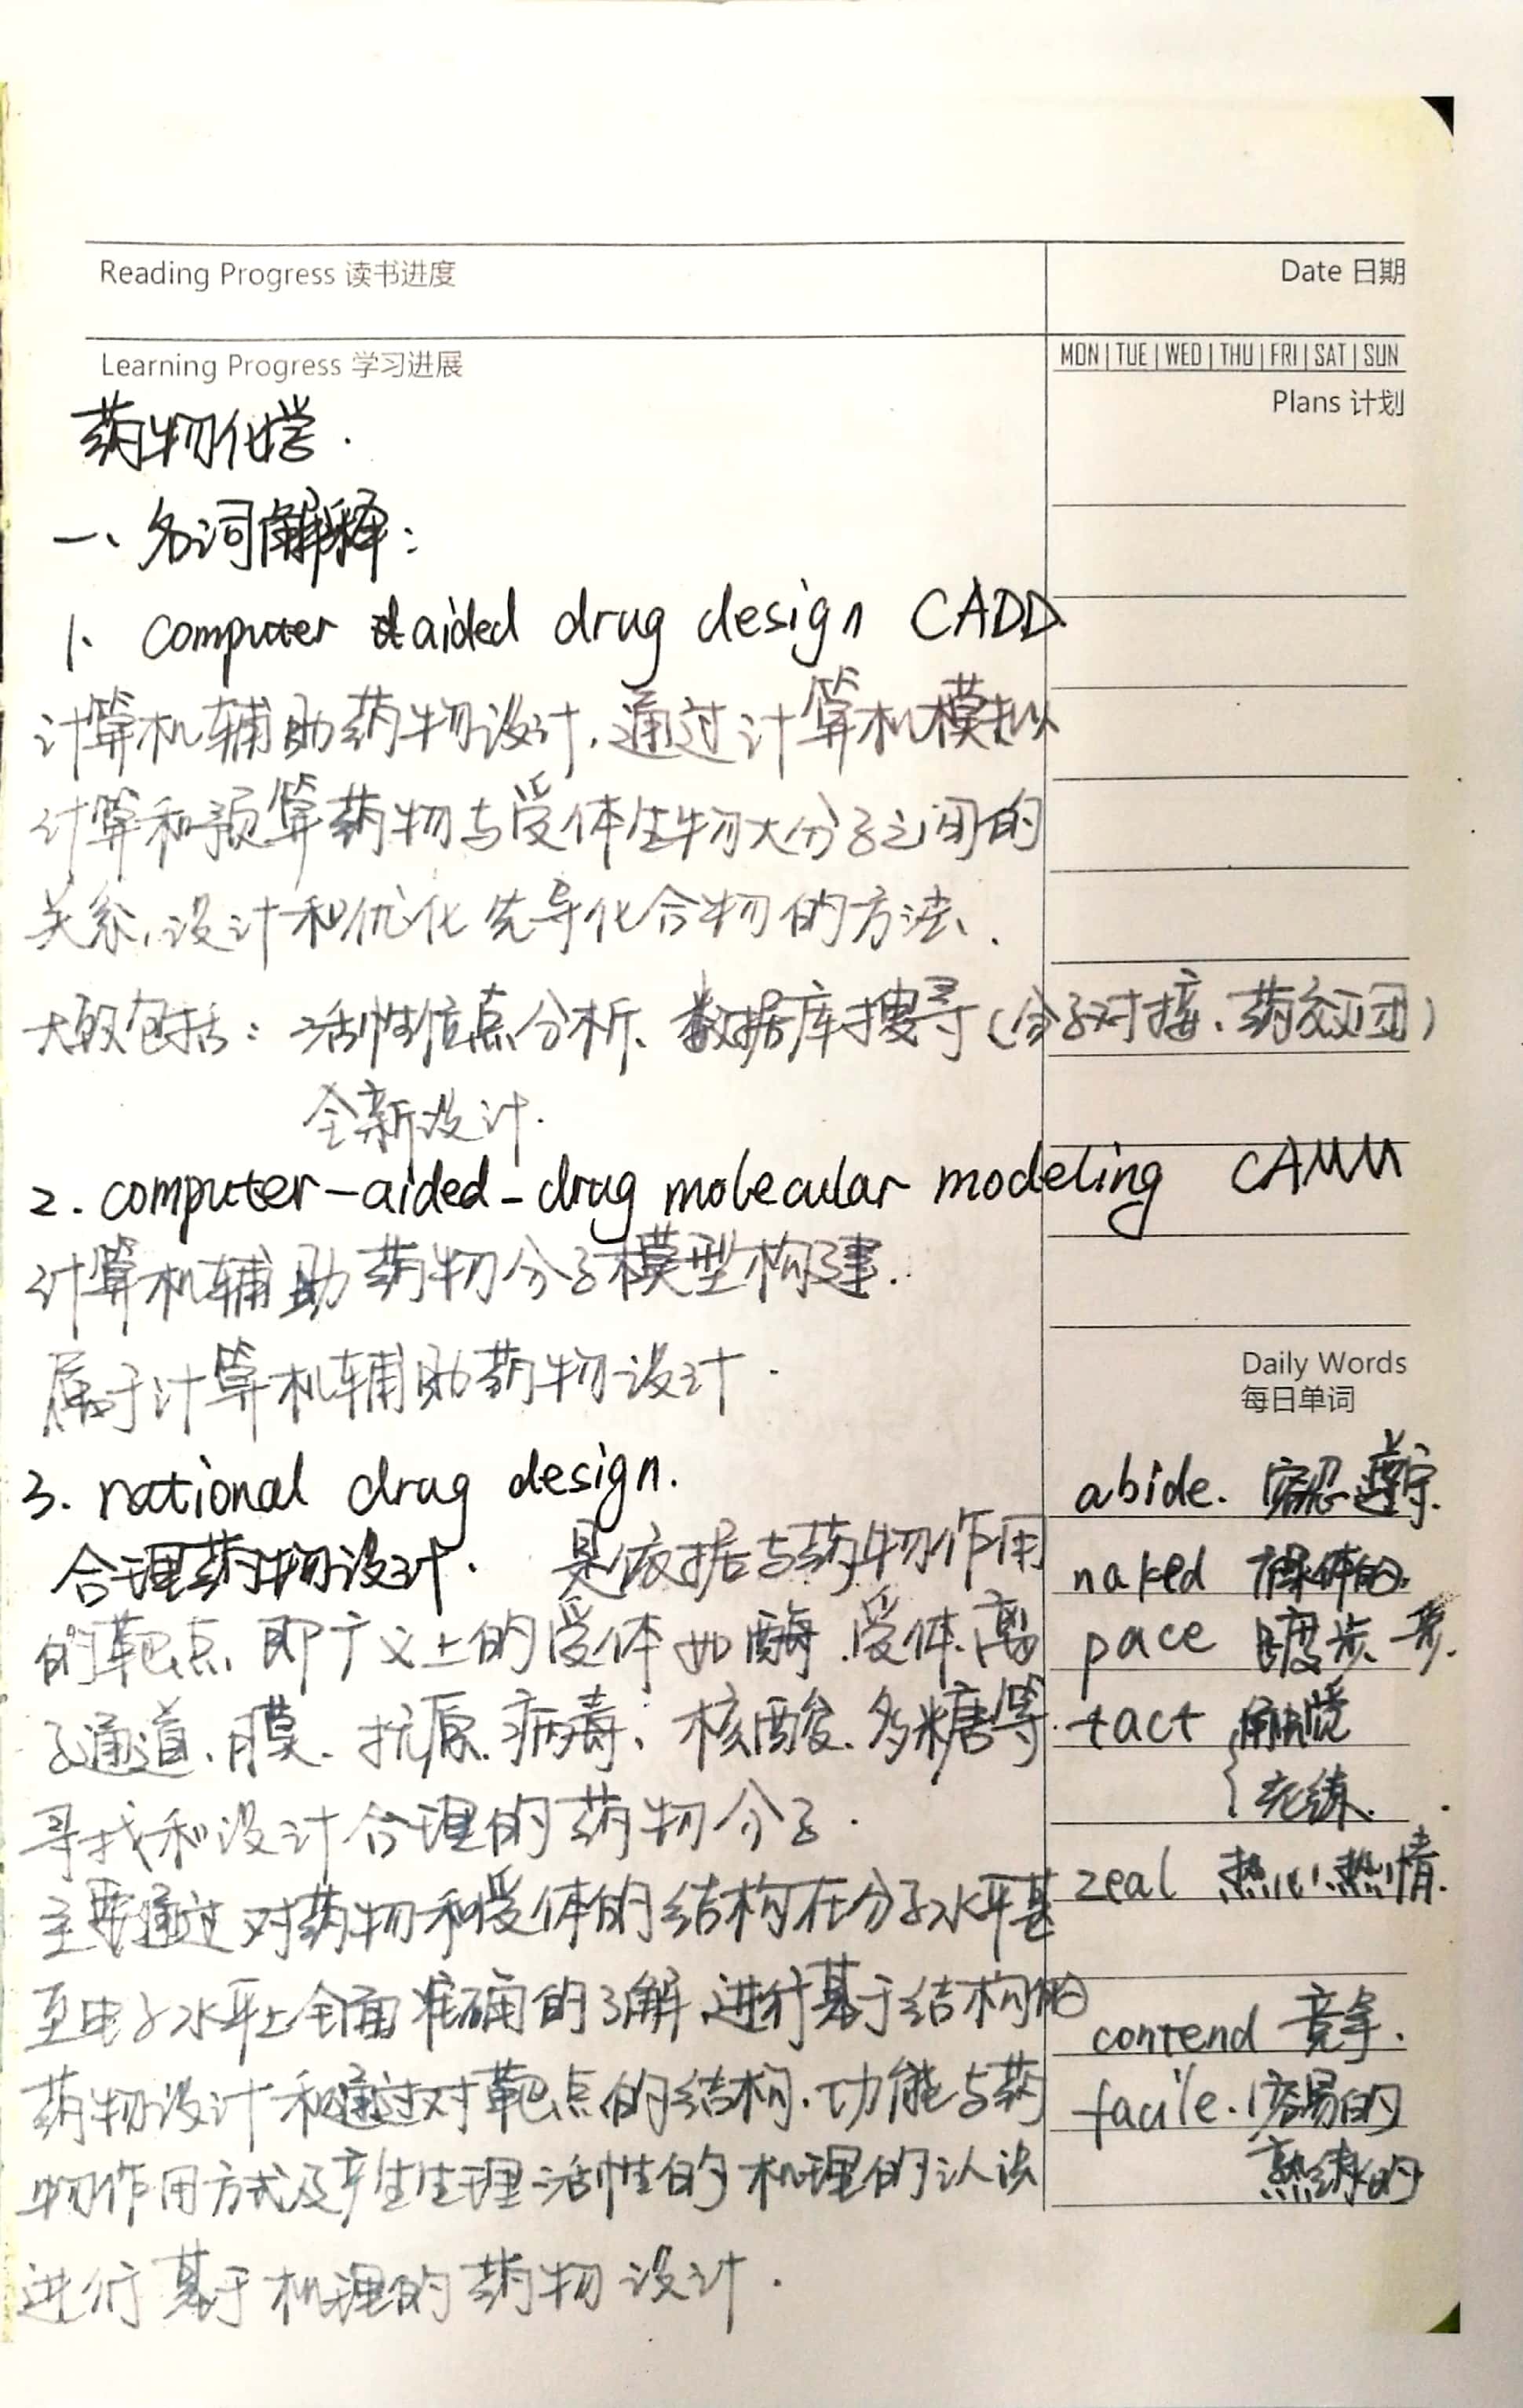 Reading Progress 读书进度
Date 日期
Learning Progress 学习进展
MON | TUE | WED | THU | FRI | SAT | SUN
Plans 计划
药物化学.
一、名词解释:
1. computer aided drug design CADD
计算机辅助药物设计,通过计算机模拟
计算和预算药物与受体生物大分子之间的
关系,设计和优化先导化合物的方法、.
大致包括: 活性位点分析、数据库搜寻(分子对接、药效团)
全新设计.
2. computer-aided-drug molecular modeling CAMM
计算机辅助药物分子模型构建.
属于计算机辅助药物设计.
3. national drug design.
合理药物设计. 是依据与药物作用
的靶点,即广义上的受体如酶、受体、离
子通道、膜、抗原、病毒、核酸、多糖等.
寻找和设计合理的药物分子.
主要通过对药物和受体的结构在分子水平甚
至电子水平上全面准确的了解,进行基于结构的
药物设计和通过对靶点的结构、功能与药
物作用方式及产生生理活性的机理的认识
进行基于机理的药物设计.
Daily Words
每日单词
abide. 容忍 遵守.
naked 裸体的.
pace 踱步、步.
tact 触觉
老练.
zeal 热心、热情.
contend 竞争.
facile. 容易的
熟练的